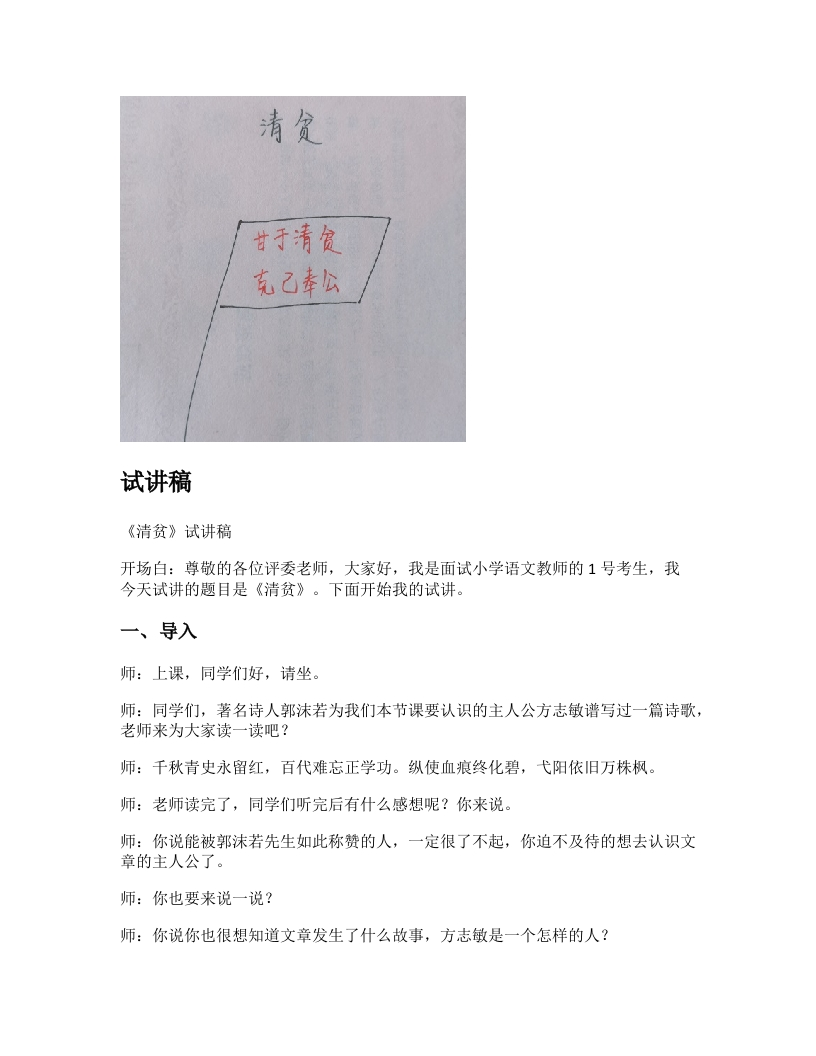 清贫
甘于清贫
克己奉公
试讲稿
《清贫》试讲稿
开场白：尊敬的各位评委老师，大家好，我是面试小学语文教师的 1 号考生，我
今天试讲的题目是《清贫》。下面开始我的试讲。
一、导入
师：上课，同学们好，请坐。
师：同学们，著名诗人郭沫若为我们本节课要认识的主人公方志敏谱写过一篇诗歌，
老师来为大家读一读吧？
师：千秋青史永留红，百代难忘正学功。纵使血痕终化碧，弋阳依旧万株枫。
师：老师读完了，同学们听完后有什么感想呢？你来说。
师：你说能被郭沫若先生如此称赞的人，一定很了不起，你迫不及待的想去认识文
章的主人公了。
师：你也要来说一说？
师：你说你也很想知道文章发生了什么故事，方志敏是一个怎样的人？